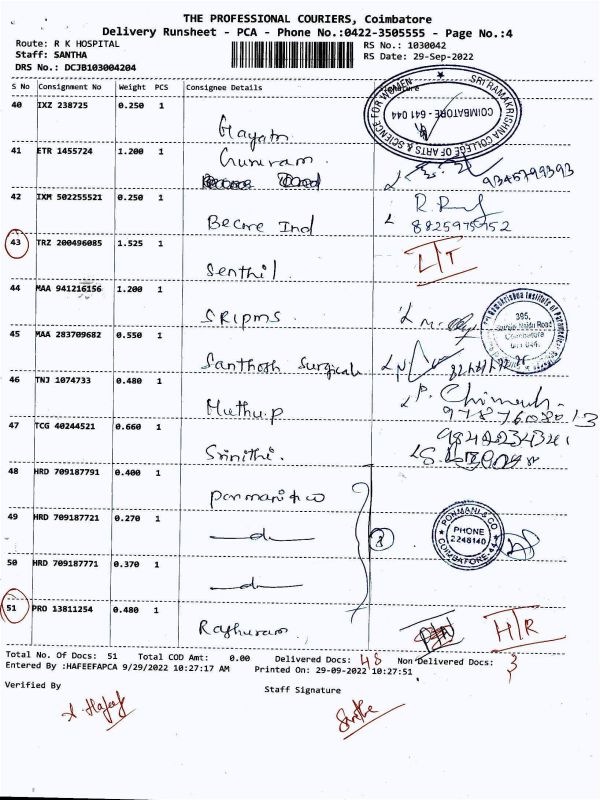 THE PROFESSIONAL COURIERS, Coimbatore
Delivery Runsheet - PCA - Phone No.:0422-3505555 - Page No.:4
Route: R K HOSPITAL
Staff: SANTHA
DRS No.: DCJB103004204
RS No.: 1030042
RS Date: 29-Sep-2022
S No Consignment No Weight PCS Consignee Details Signature
SRI RAMAKRISHNA COLLEGE OF ARTS & SCIENCE FOR WOMEN
COIMBATORE - 641 044
40 IXZ 238725 0.250 1
41 ETR 1455724 1.200 1
9345799393
42 IXM 502255521 0.250 1 Becore Ind
43 TRZ 200496085 1.525 1 Senthil
44 MAA 941216156 1.200 1 SRIPMS
395,
Coimbatore
45 MAA 283709682 0.550 1 Santhosh Surgicals
46 TNJ 1074733 0.480 1 Muthu.P
47 TCG 40244521 0.660 1 Srinithi.
48 HRD 709187791 0.400 1 Ponmani & co
49 HRD 709187721 0.270 1
PONMANI & CO
PHONE
2246140
COIMBATORE-44
50 HRD 709187771 0.370 1
51 PRO 13811254 0.480 1 Raghuram
H/R
Total No. Of Docs: 51 Total COD Amt: 0.00 Delivered Docs: 48 Non Delivered Docs: 3
Entered By :HAFEEFAPCA 9/29/2022 10:27:17 AM Printed On: 29-09-2022 10:27:51
Verified By
Staff Signature
Santha